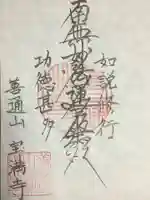 如説修行
南無妙法蓮華経
功徳甚多
善通山